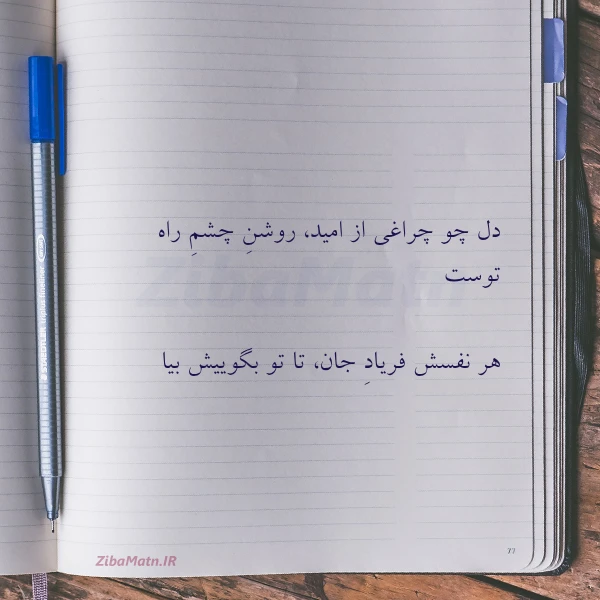 دل چو چراغی از امید، روشنِ چشمِ راه
توست
هر نفسش فریادِ جان، تا تو بگوییش بیا
ZibaMatn
ZibaMatn.IR
77